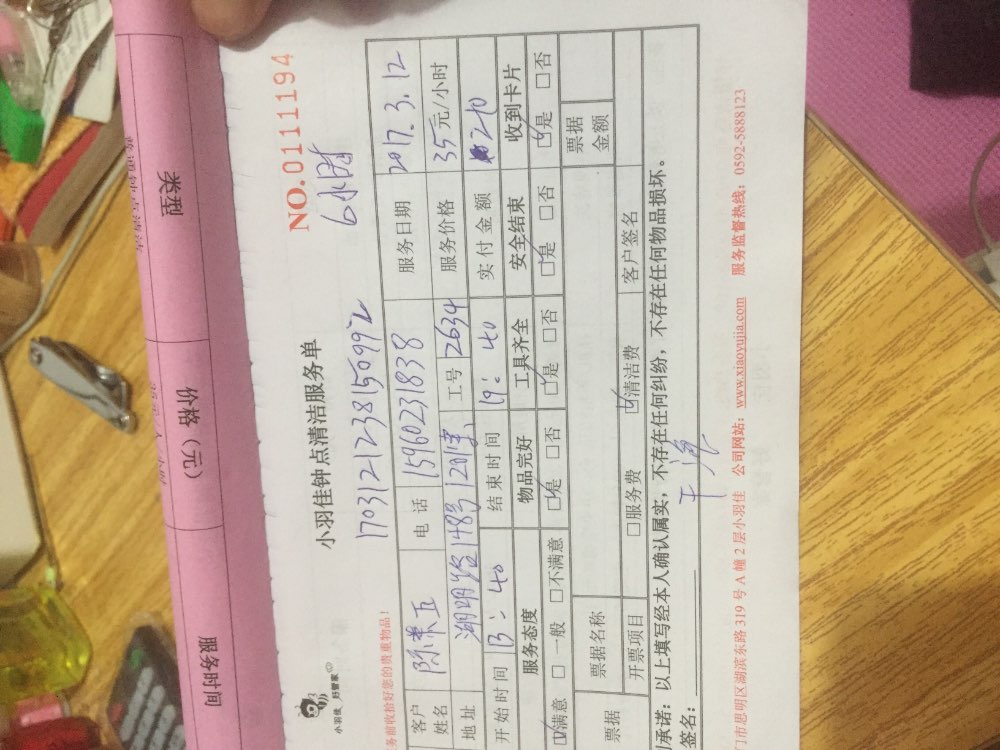 服务时间 价格（元） 类型
NO.0111194
小羽佳 好管家
小羽佳钟点清洁服务单
6小时
务前收拾好您的贵重物品！
170312123815099 2
客户姓名 陈 五 电话 15960231838 服务日期 2017.3.12
地址 湖明路148号1201室 工号 2634 服务价格 35元/小时
开始时间 13:40 结束时间 19:40 实付金额 210
服务态度 物品完好 工具齐全 安全结束 收到卡片
☑满意 □一般 □不满意 ☑是 □否 ☑是 □否 ☑是 □否 ☑是 □否
票据 票据名称 票据金额
开票项目 □服务费 ☑清洁费 客户签名
承诺：以上填写经本人确认属实，不存在任何纠纷，不存在任何物品损坏。
签名：
门市思明区湖滨东路319号A幢2层小羽佳 公司网站：www.xiaoyujia.com 服务监督热线：0592-5888123